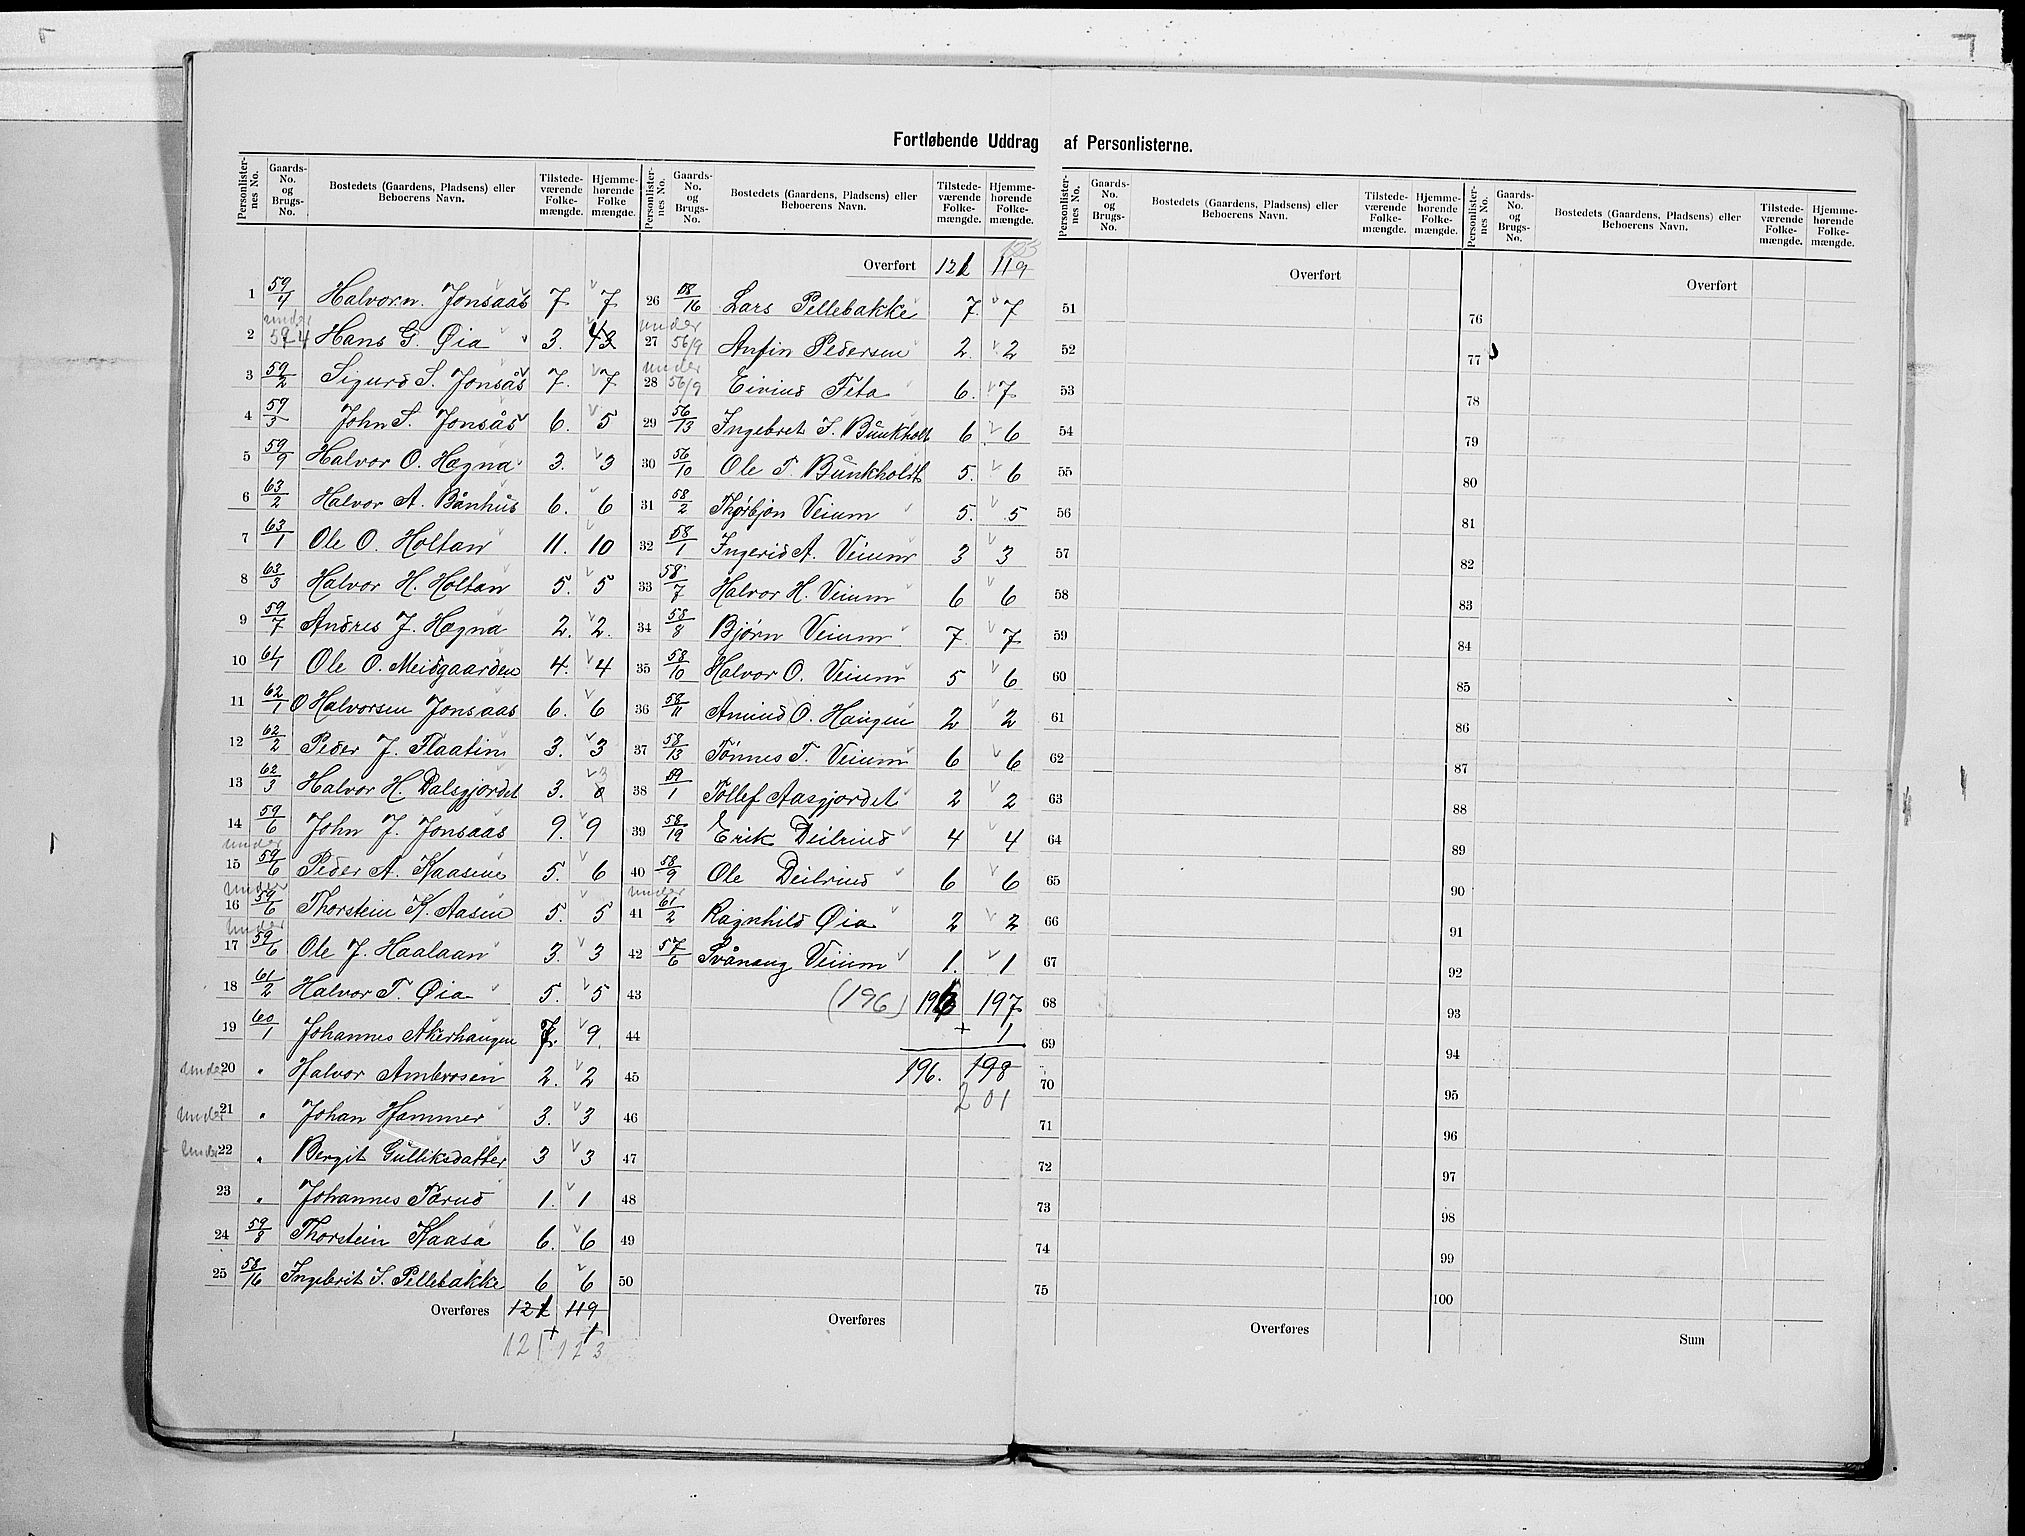 Fortløbende Uddrag af Personlisterne.
Personlister-nes No. | Gaards-No. og Brugs-No. | Bostedets (Gaardens, Pladsens) eller Beboerens Navn. | Tilstede-værende Folke-mængde. | Hjemme-hørende Folke mængde.
1 59/4 Halvor n. Jonsaas 7 7
2 under 59/4 Hans G. Øia 3. 3
3 59/2 Sigurd S. Jonsås 7. 7
4 59/3 John S. Jonsås 6. 5
5 59/9 Halvor O. Hægna 3. 3
6 63/2 Halvor A. Bånhus 6. 6
7 63/1 Ole O. Holtan 11. 10
8 63/3 Halvor H. Holtan 5. 5
9 59/7 Andres J. Hægna 2. 2.
10 61/1 Ole O. Meidgaarden 4. 4
11 62/1 O Halvorsen Jonsaas 6. 6
12 62/2 Peder J. Flaatin 3. 3
13 62/3 Halvor H. Dalsgjordet 3. 3
14 59/6 John J. Jonsaas 9. 9
15 under 59/6 Peder A. Kaasene 5. 6
16 under 59/6 Thorstein K. Aasen 5. 5
17 under 59/6 Ole J. Haalaan 3. 3
18 61/2 Halvor T. Øia 5. 5
19 60/1 Johannes Akerhaugen 7. 9.
under 20 " Halvor Ambrosen 2. 2
under 21 " Johan Hammer 3. 3
under 22 " Bergit Gulliksdatter 3 3
23 " Johannes Tårud 1. 1
24 59/8 Thorstein Kaasa 6. 6
25 58/16 Ingebrit S. Pellebakke 6 6
Overføres 121 119
+ 1
121 123
Personlister-nes No. | Gaards-No. og Brugs-No. | Bostedets (Gaardens, Pladsens) eller Beboerens Navn. | Tilstede-værende Folke-mængde. | Hjemme-hørende Folke-mængde.
123
Overført 121 119
26 58/16 Lars Pellebakke 7. 7
27 under 56/9 Anfin Pedersen 2. 2
28 under 56/9 Eivind Teta 6. 7
29 56/13 Ingebret T. Bunkholt 6 6
30 56/10 Ole T. Bunkholdt 5. 6
31 58/2 Thorbjøn Veium 5. 5
32 58/1 Ingerid A. Veium 3 3
33 58/7 Halvor H. Veium 6 6
34 58/8 Bjørn Veium 7. 7
35 58/10 Halvor O. Veium 5 6
36 58/11 Amund O. Haugen 2 2
37 58/13 Tønnes T. Veium 6 6
38 59/1 Tollef Aasgjordet 2 2
39 58/19 Erik Deilrud 4 4
40 58/9 Ole Deilrud 6 6
41 under 61/2 Ragnhild Øia 2 2
42 57/6 Svånaug Veium 1. 1
43 (196) 196 197
44 + 1
45 196. 198
201
46
47
48
49
50
Overføres
Personlister-nes No. | Gaards-No. og Brugs-No. | Bostedets (Gaardens, Pladsens) eller Beboerens Navn. | Tilstede-værende Folke-mængde. | Hjemme-hørende Folke-mængde.
Overført
51
52
53
54
55
56
57
58
59
60
61
62
63
64
65
66
67
68
69
70
71
72
73
74
75
Overføres
Personlister-nes No. | Gaards-No. og Brugs-No. | Bostedets (Gaardens, Pladsens) eller Beboerens Navn. | Tilstede-værende Folke-mængde. | Hjemme-hørende Folke-mængde.
Overført
76
77
78
79
80
81
82
83
84
85
86
87
88
89
90
91
92
93
94
95
96
97
98
99
100
Sum